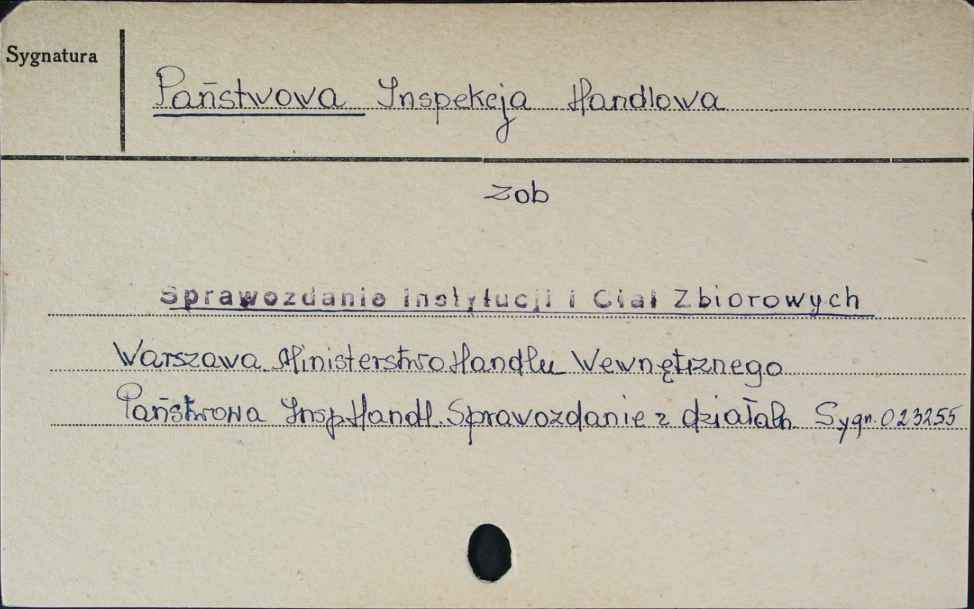 Sygnatura
Państwowa Inspekcja Handlowa
zob
Sprawozdania Instytucji i Ciał Zbiorowych
Warszawa. Ministerstwo Handlu Wewnętrznego
Państwowa Insp. Handl. Sprawozdanie z działaln. Sygn. 023255